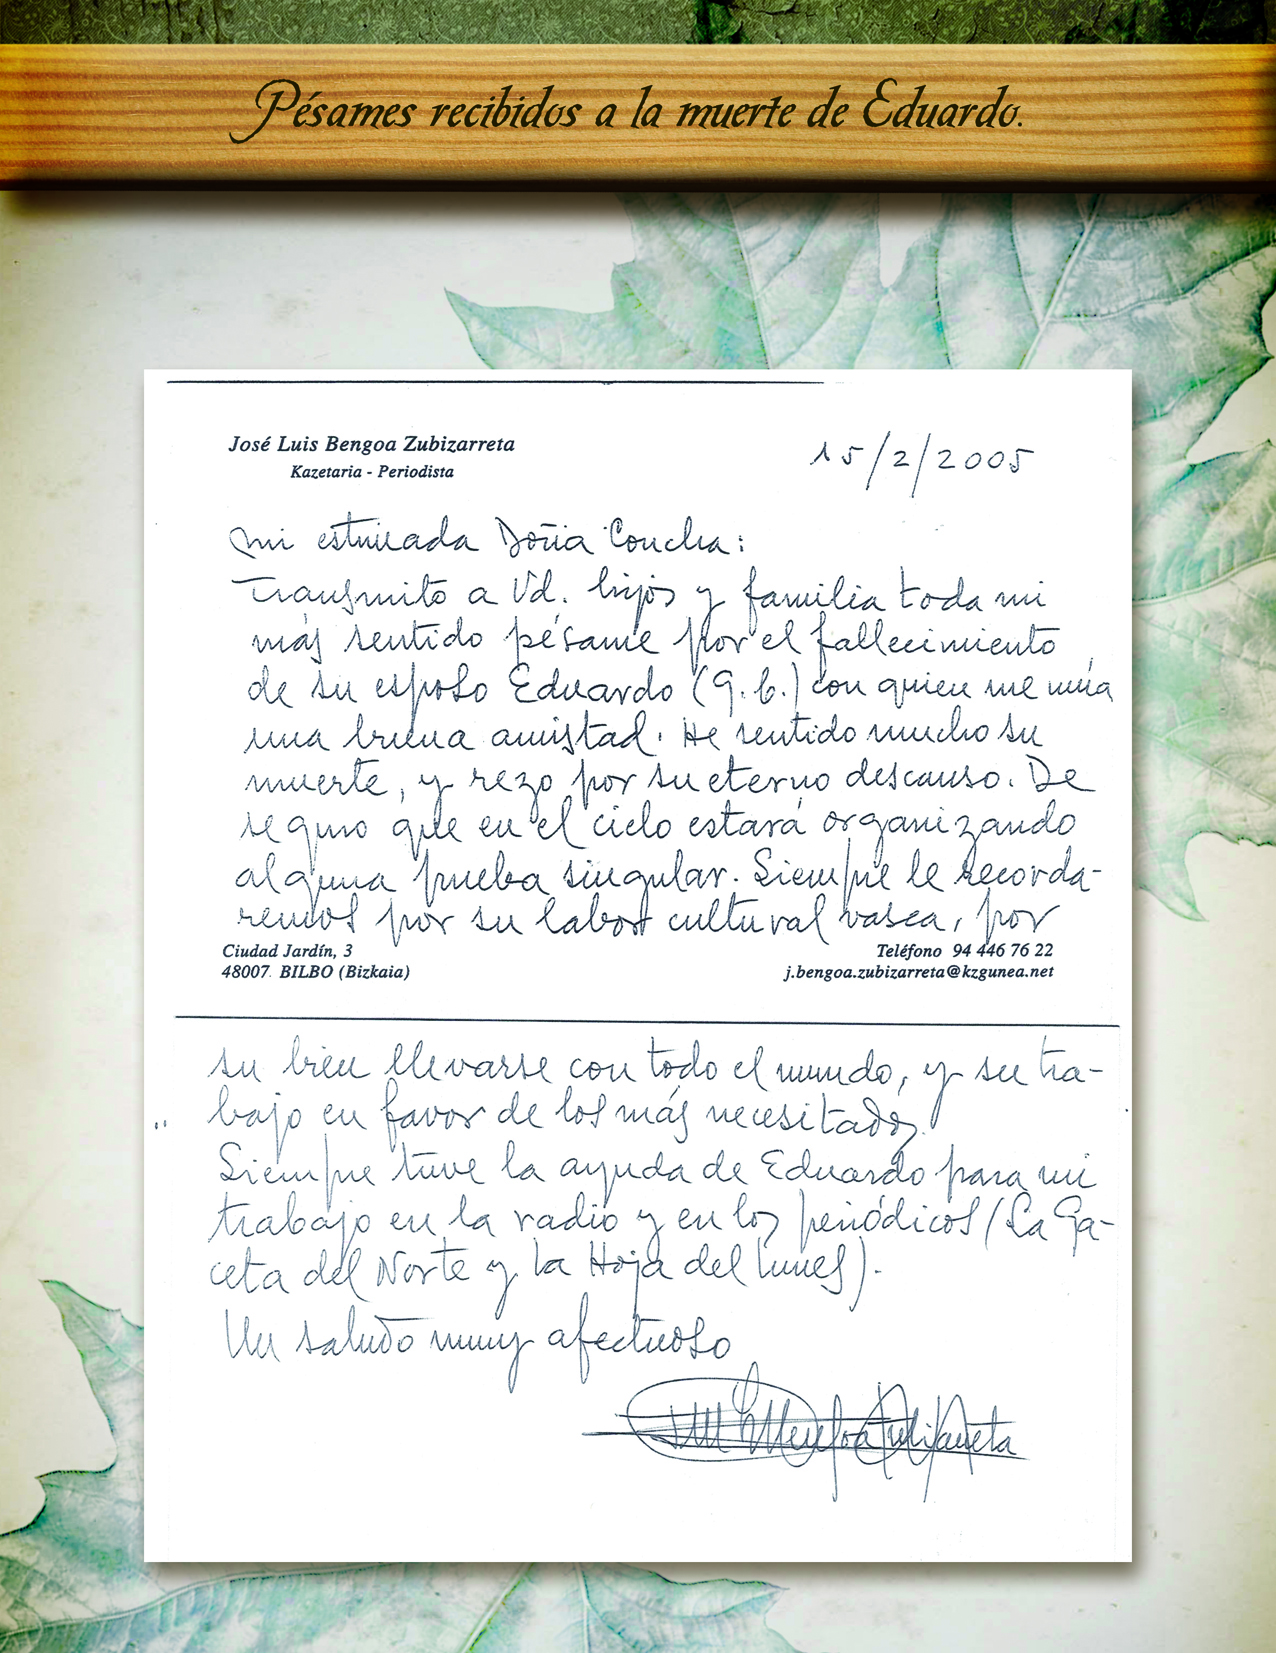 Pésames recibidos a la muerte de Eduardo.
José Luis Bengoa Zubizarreta
Kazetaria - Periodista
15/2/2005
Mi estimada Doña Concha:
Transmito a Vd. hijos y familia toda mi
más sentido pésame por el fallecimiento
de su esposo Eduardo (q. b.) con quien me unía
una buena amistad. He sentido mucho su
muerte, y rezo por su eterno descanso. De
seguro que en el cielo estará organizando
alguna prueba singular. Siempre le recorda-
remos por su labor cultural vasca, por
Ciudad Jardín, 3
Teléfono 94 446 76 22
48007 BILBO (Bizkaia)
j.bengoa.zubizarreta@kzgunea.net
su bien llevarse con todo el mundo, y su tra-
bajo en favor de los más necesitados.
Siempre tuve la ayuda de Eduardo para mi
trabajo en la radio y en los periódicos (La Ga-
ceta del Norte y la Hoja del lunes).
Un saludo muy afectuoso